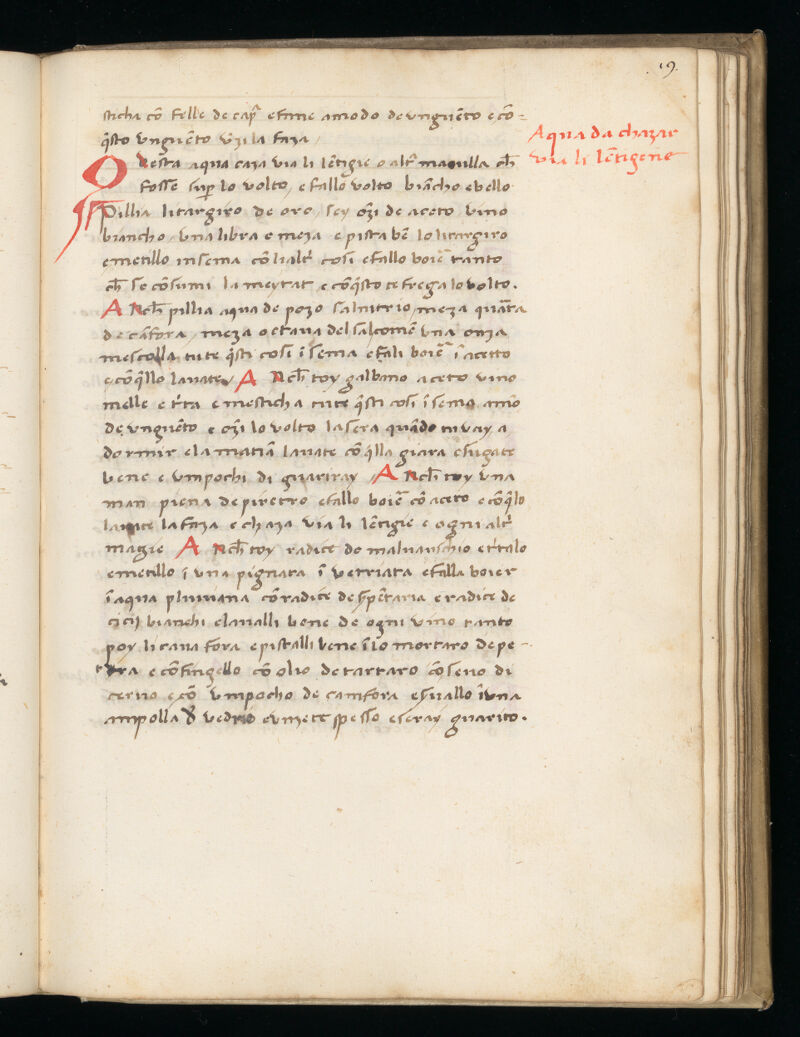 19.
sticha cō felle de cap̄ e fane a modo de vnguēto e cō=
q̄sto vnguēto vnzi la faza /
Aqua da chazar
via li lētigene
Questa aqua caza via li lētigie o alt̄ macula ch̄
fosse sup̄ lo volto / e fallo volto biancho e bello
Pillia litargiro de oro / sey onzi de aceto vino
biancho / vna libra e meza e pista bē lo litargiro
e metillo insema cō li alt̄ cosi e fallo boiē tanto
ch̄ se cōsumi la meytat e cō q̄sto te frega lo volto.
Anch̄ pillia aqua de pozo salnitrio / meza quarta
de cāfora / meza octaua del salcomē vna onza
mescolla tute q̄sti cosi ī sema e fali boiē ī acetto
e cō q̄llo lauate / Anch̄ toy galbano aceto vino
melle e t̄ra e mesticha tute q̄sti cosi ī semo a mō
de vnguēto e onzi lo volto la sera quādo tu vay a
dormir e la matiā lauate cō q̄lla giara e sugate
bene e vmpochi di guariray Anch̄ toy vna
man piena de piretro e fallo boiē cō aceto e cō q̄lo
lauate la faza e chaza via li lētigie e ogni alt̄
magie Anch̄ toy radice do maluauischio et̄ralo
e metillo ī vna pignata ī vetriata e falla boier
ī aqua pluuiana cō radice de sp̄etaria e radice de
cicili bianchi e laualli bene de ogni vino tanto
poy li caua fora e pistalli bene ī lo mortaro de pe-
tra e cōfingello cō olio de tartaro cō seuo di
ceruo e cō vmpocho de camfora e sguallo ī vna
ampolla d vedrio e vnzete spesso e seray guarito.